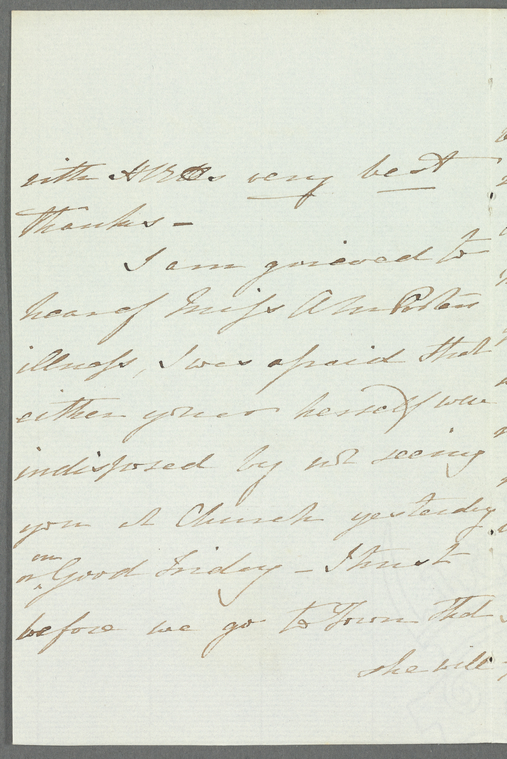 with HRHs very best
thanks –
I am grieved to
hear of Miss A M Porters
illness, I was afraid that
either you or herself were
indisposed by not seeing
you at Church yesterday
or on Good Friday – I trust
before we go to Town that
she will